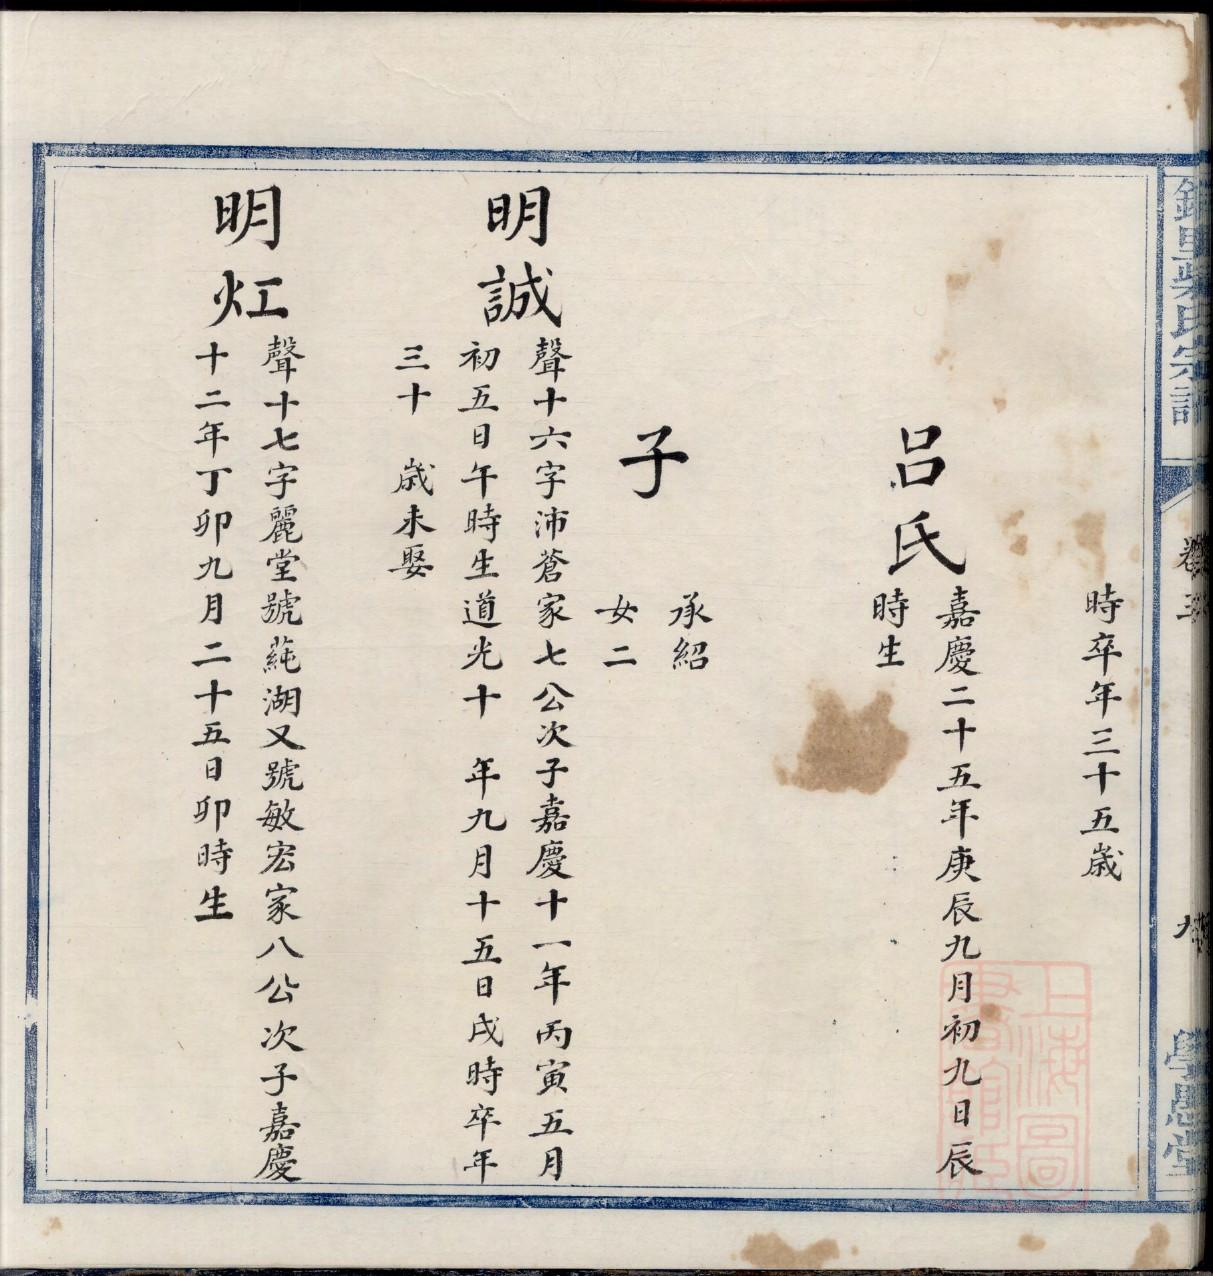 時卒年三十五歲
呂氏
嘉慶二十五年庚辰九月初九日辰
時生
子
承紹
女二
明誠
聲十六字沛蒼家七公次子嘉慶十一年丙寅五月
初五日午時生道光十 年九月十五日戌時卒年
三十 歲未娶
明灴
聲十七字麗堂號蒓湖又號敏宏家八公次子嘉慶
十二年丁卯九月二十五日卯時生
柴氏宗譜
卷三
九
學思堂
上海圖
書館藏